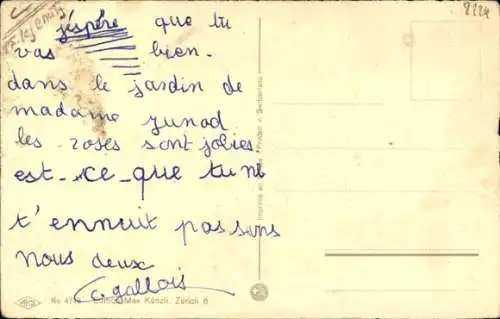 j'espère que tu
vas bien.
dans le jardin de
madame Junod
les roses sont jolies
est-ce-que tu ne
t'ennuit pas sans
nous deux
C. gallois
No 47
Edition Max Künzli, Zürich 8
Imprimé en Suisse / Printed in Switzerland